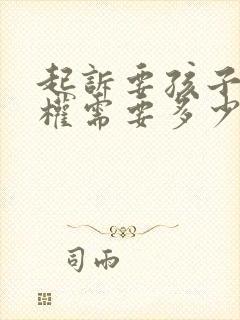 起訴要孩子
權需要多少
司雨